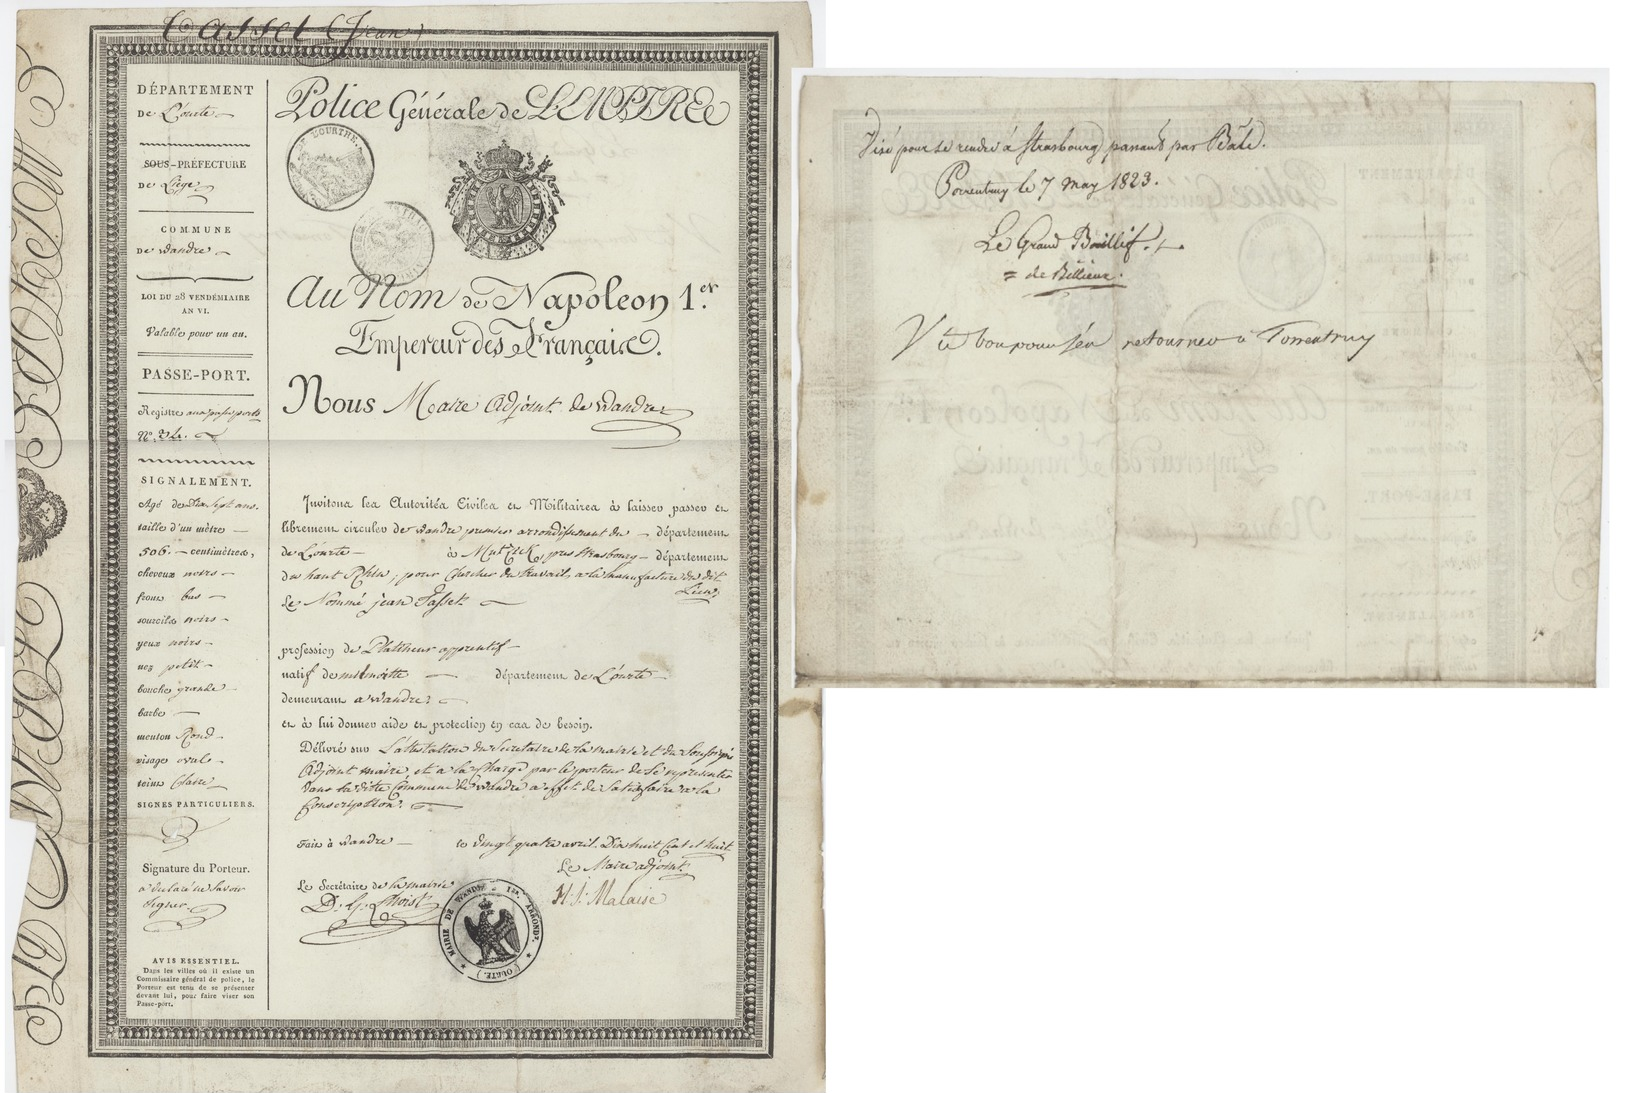 Tasset (Jean)
DÉPARTEMENT
De L'ourte
SOUS-PRÉFECTURE
DE Liége
COMMUNE
DE Wandre
LOI DU 28 VENDÉMIAIRE
AN VI.
Valable pour un an.
PASSE-PORT.
Registre aux passeports
N.º 34.
SIGNALEMENT.
Agé de Dix sept ans
taille d'un mètre
506. centimètres,
cheveux noirs
front bas
sourcils noirs
yeux noirs
nez petit
bouche grande
barbe
menton Rond
visage ovale
teint Claire
SIGNES PARTICULIERS.
Signature du Porteur.
a declaré ne savoir
signer.
AVIS ESSENTIEL.
Dans les villes où il existe un
Commissaire général de police, le
Porteur est tenu de se présenter
devant lui, pour faire viser son
Passe-port.
Police Générale de L'EMPIRE
L'OURTHE
Au Nom de Napoleon 1.er
Empereur des Français.
Nous Maire Adjoint de Wandre
Invitons les Autorités Civiles et Militaires à laisser passer et
librement circuler de Wandre premier arrondissement du département
de L'ourte à Mutzick, pres Strasbourg département
du haut Rhin, pour Chercher du travail, a la manufacture du dit
Lieu,
Le Nommé jean Tasset
profession de Platineur apprentif
natif de milmorte département de L'ourte
demeurant a Wandre
et à lui donner aide et protection en cas de besoin.
Délivré sur L'attestation du Secretaire de la mairie et du Soussigné
Adjoint maire, et a la Charge par le porteur de Se representer
dans la ditte Commune de Wandre a effet de Satisfaire a la
Conscription.
Fait à Wandre le vingt quatre avril. Dix huit Cent et huit
Le Maire adjoint
Le Secrétaire de la mairie
H. J. Malaise
MAIRIE DE WANDRE 1.ER ARROND.T (OURTE.)
Visé pour se rendre à Strasbourg passant par Bâle.
Porrentruy le 7 May 1823.
Le Grand Baillif.
= de Billieux.
Vü bon pour s'en retourner a Porrentruy